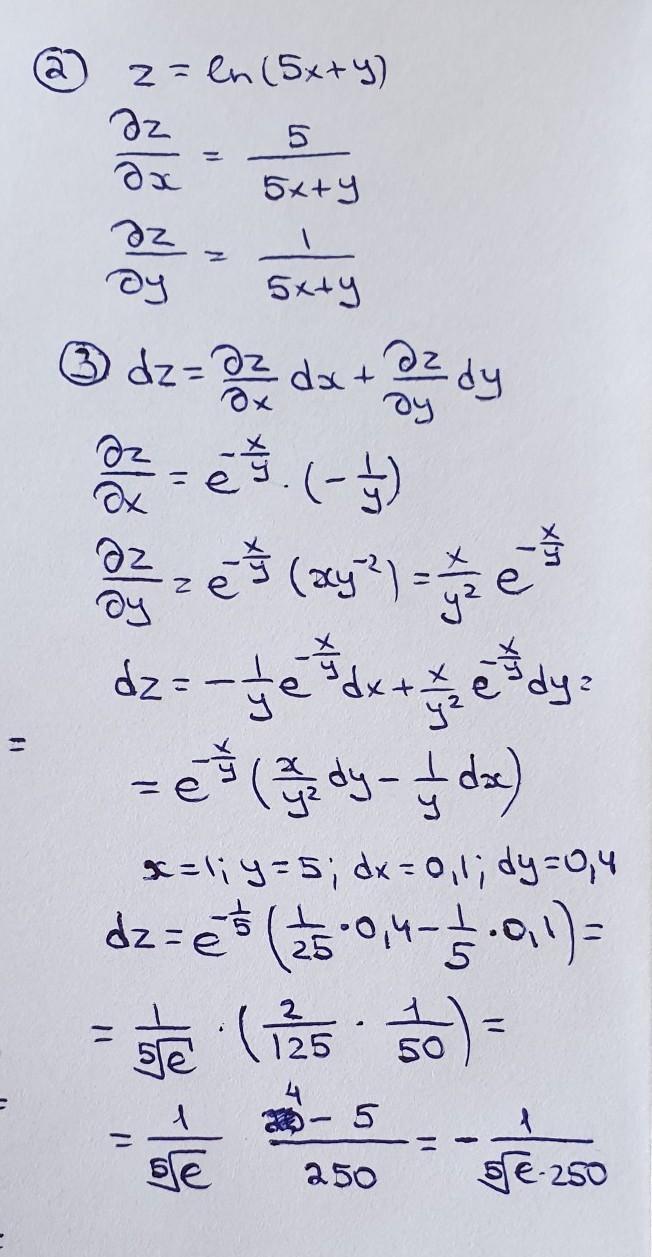 ② z = ln(5x+y)
∂z/∂x = 5/(5x+y)
∂z/∂y = 1/(5x+y)
③ dz = ∂z/∂x dx + ∂z/∂y dy
∂z/∂x = e^(-x/y) · (-1/y)
∂z/∂y = e^(-x/y) (xy^(-2)) = x/y² e^(-x/y)
dz = -1/y e^(-x/y) dx + x/y² e^(-x/y) dy =
= e^(-x/y) (x/y² dy - 1/y dx)
x=1; y=5; dx=0,1; dy=0,4
dz = e^(-1/5) (1/25 · 0,4 - 1/5 · 0,1) =
= 1/⁵√e · (2/125 · 1/50) =
= 1/⁵√e (4 - 5)/250 = - 1/(⁵√e · 250)